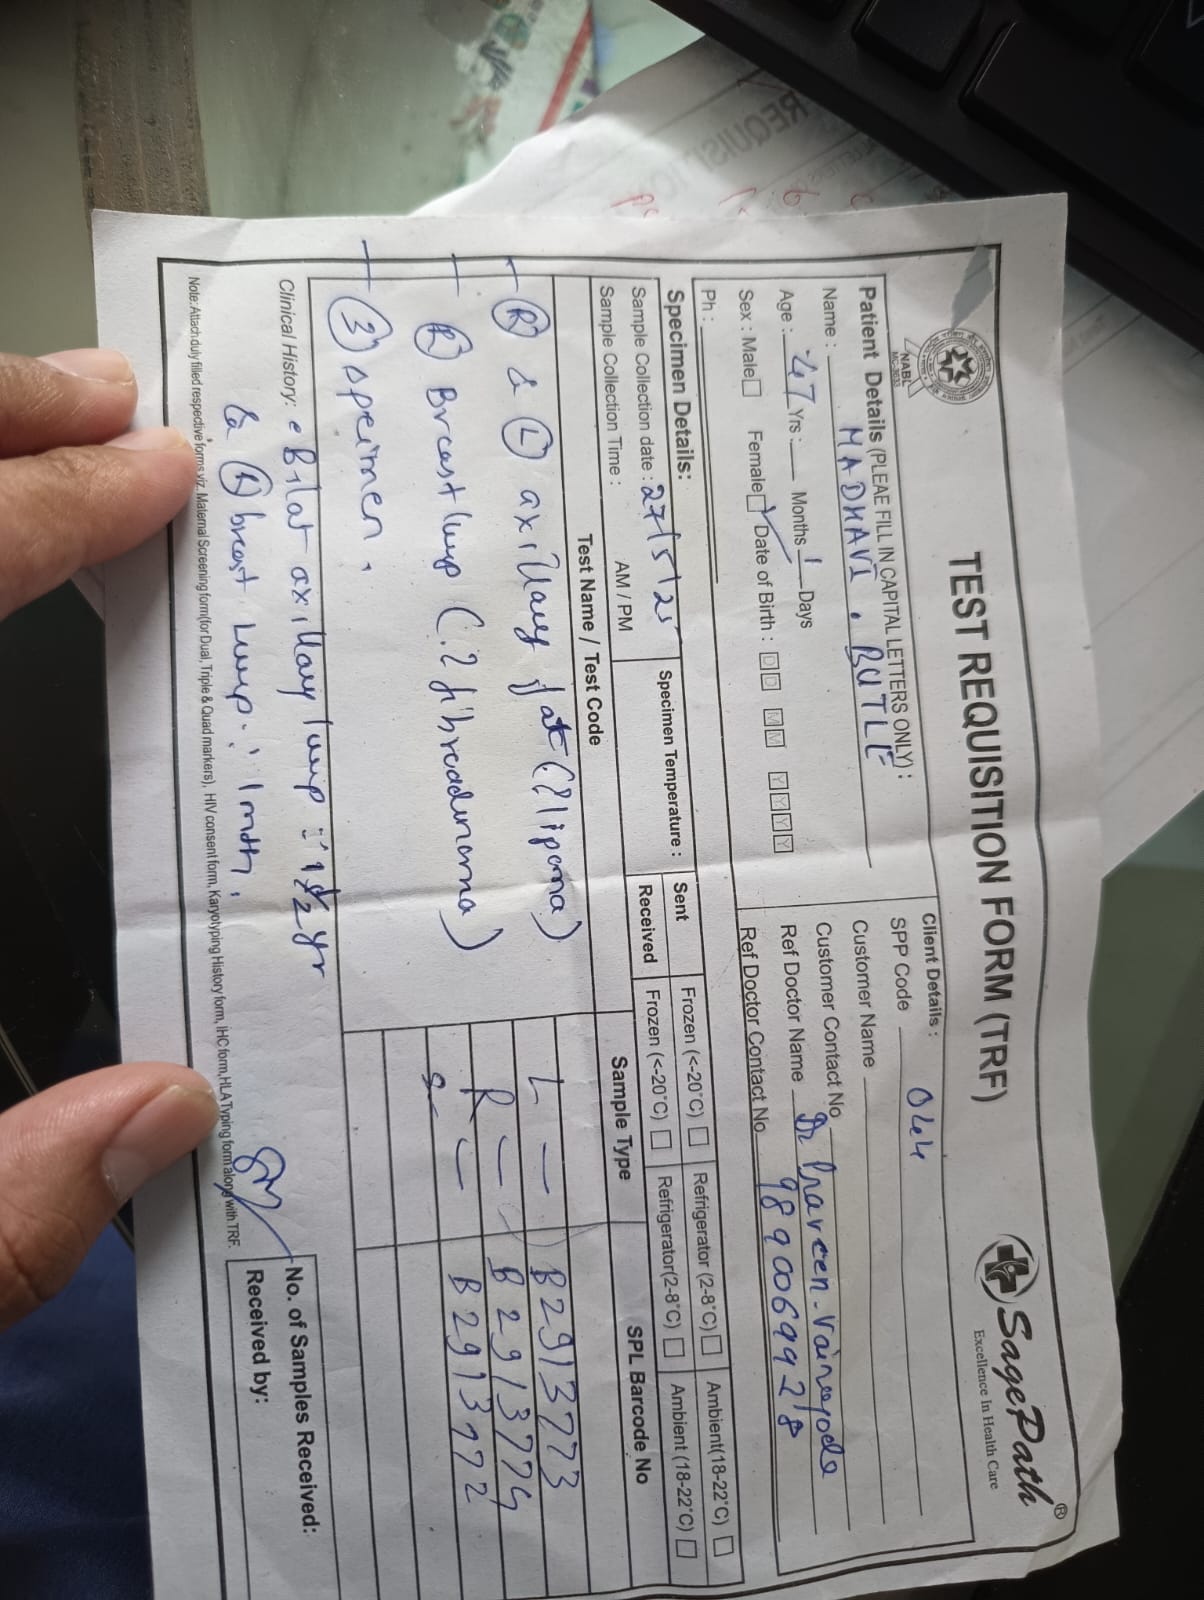 TEST REQUISITION FORM (TRF)
SagePath®
Excellence In Health Care
NABL
Patient Details (PLEAE FILL IN CAPITAL LETTERS ONLY) :
Name : MADHAVI . BUTLE
Age : 47 Yrs : Months Days
Sex : Male Female Date of Birth : DD MM YYYY
Ph :
Client Details :
SPP Code 044
Customer Name
Customer Contact No
Ref Doctor Name Dr Praveen
Ref Doctor Contact No 9890069928
Specimen Details:
Sample Collection date : 27/5/25
Sample Collection Time : AM / PM
Specimen Temperature :
Sent Frozen (<-20°C) Refrigerator (2-8°C) Ambient(18-22°C)
Received Frozen (<-20°C) Refrigerator(2-8°C) Ambient (18-22°C)
Test Name / Test Code Sample Type SPL Barcode No
- R & L axillary fat (? lipoma) L - B2913773
R - B2913774
- R Breast lump (? fibroadenoma) B2913772
- 3 speimen.
Clinical History: • Bilat axillary lump : 1 1/2 yr
& R breast lump : 1 mth.
No. of Samples Received:
Received by:
Note: Attach duly filled respective forms viz. Maternal Screening form(for Dual, Triple & Quad markers), HIV consent form, Karyotyping History form, IHC form, HLA Typing form along with TRF.